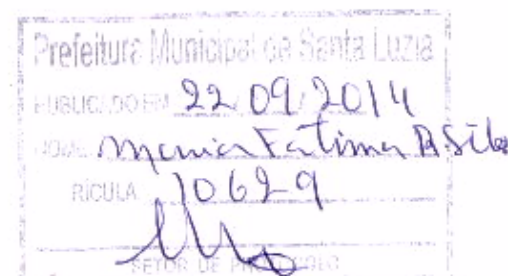 Prefeitura Municipal de Santa Luzia
PUBLICADO EM 22/09/2014
NOME Maria Fatima A. Silva
RÍCULA 10629
SETOR DE PROTOCOLO